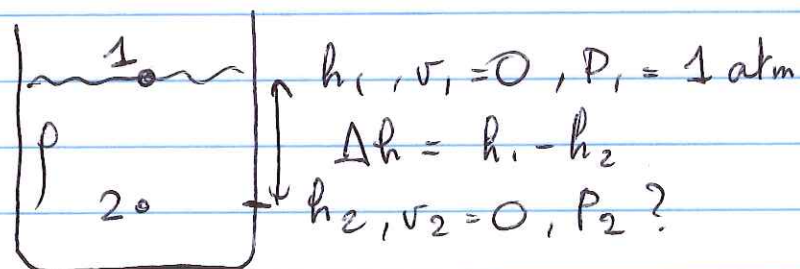 1 h₁, v₁ = 0, P₁ = 1 atm
ρ Δh = h₁ - h₂
2 h₂, v₂ = 0, P₂ ?